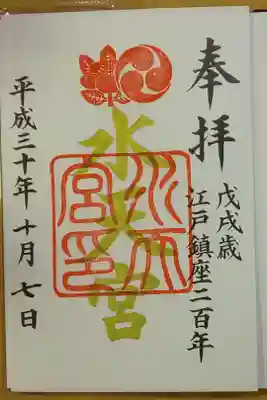 奉拝
戊戌歳
江戸鎮座二百年
水天宮
水天宮印
平成三十年十月七日